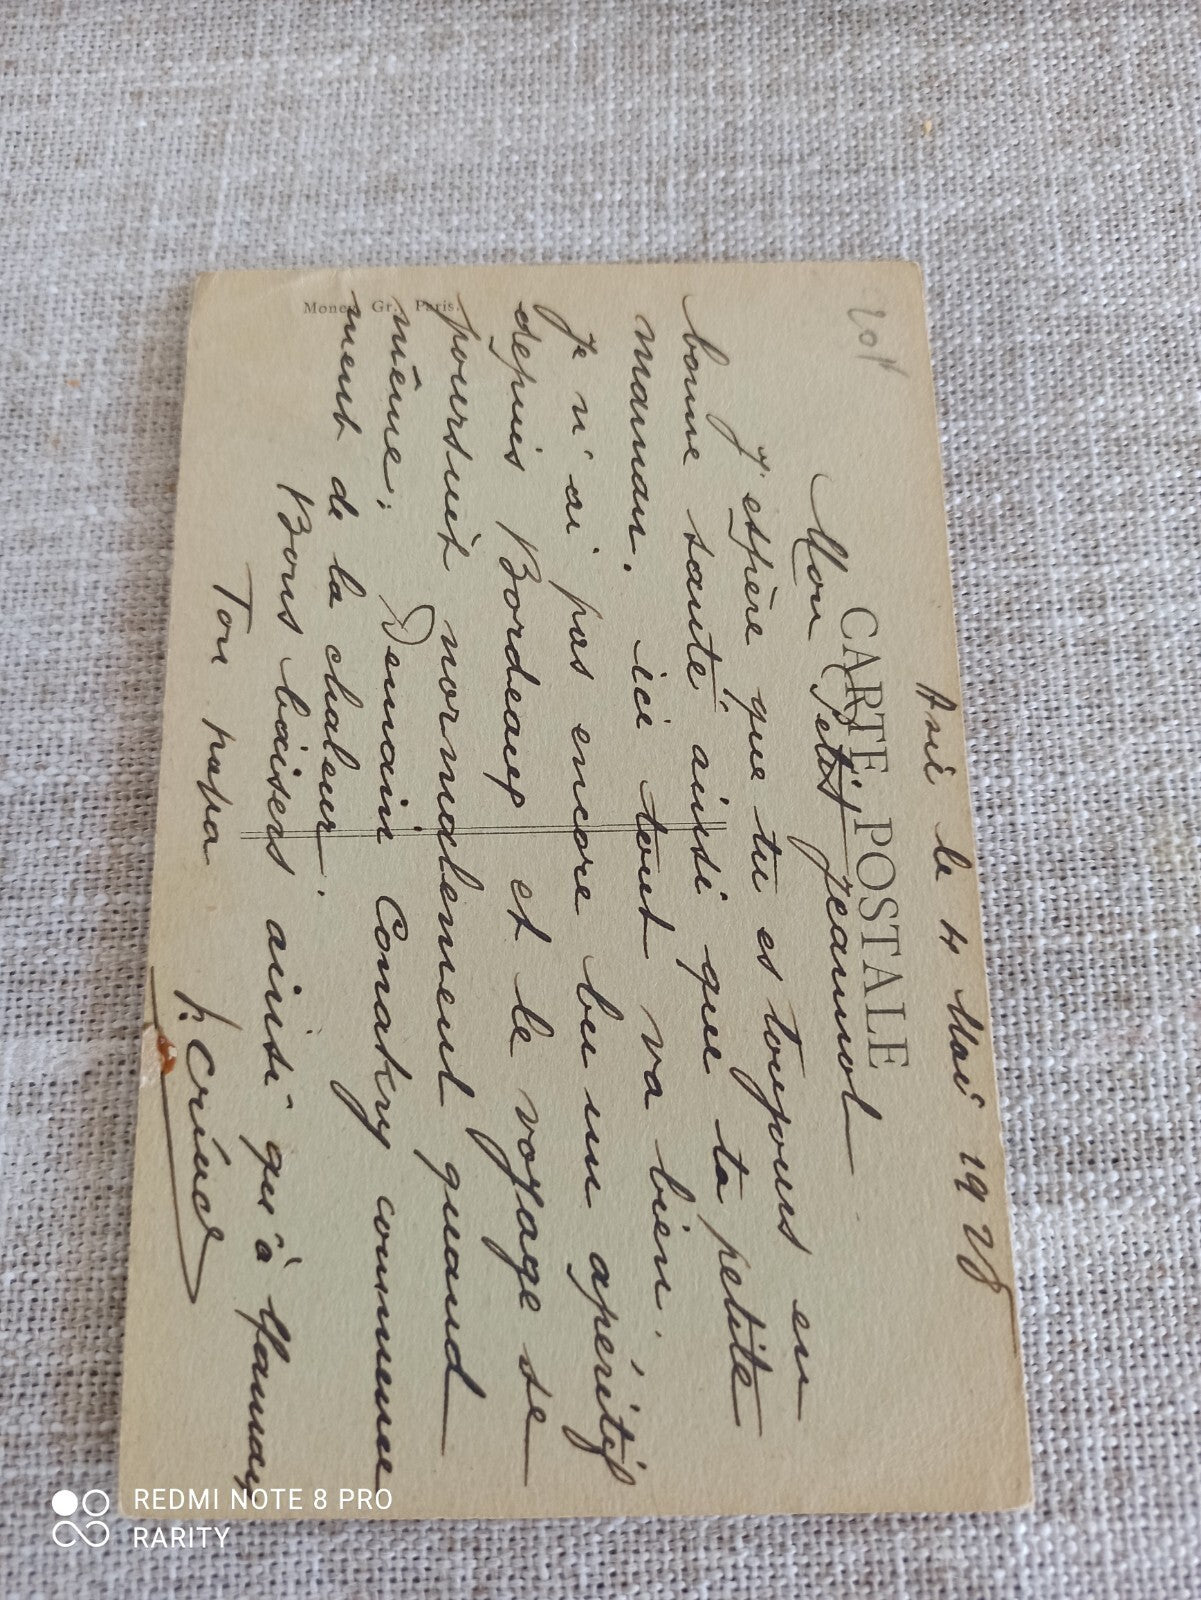 le 4 Mai 1928
CARTE POSTALE
201
Mon Petit Jeannot
J'espère que tu es toujours en
bonne santé ainsi que ta petite
maman. ici tout va bien.
Je n'ai pas encore bu un apéritif
depuis Bordeaux et le voyage se
poursuit normalement quand
même. Demain Conakry commence
ment de la chaleur.
Bons baisers ainsi qu'à Maman
Ton papa
Mone Gr. Paris.
REDMI NOTE 8 PRO
RARITY